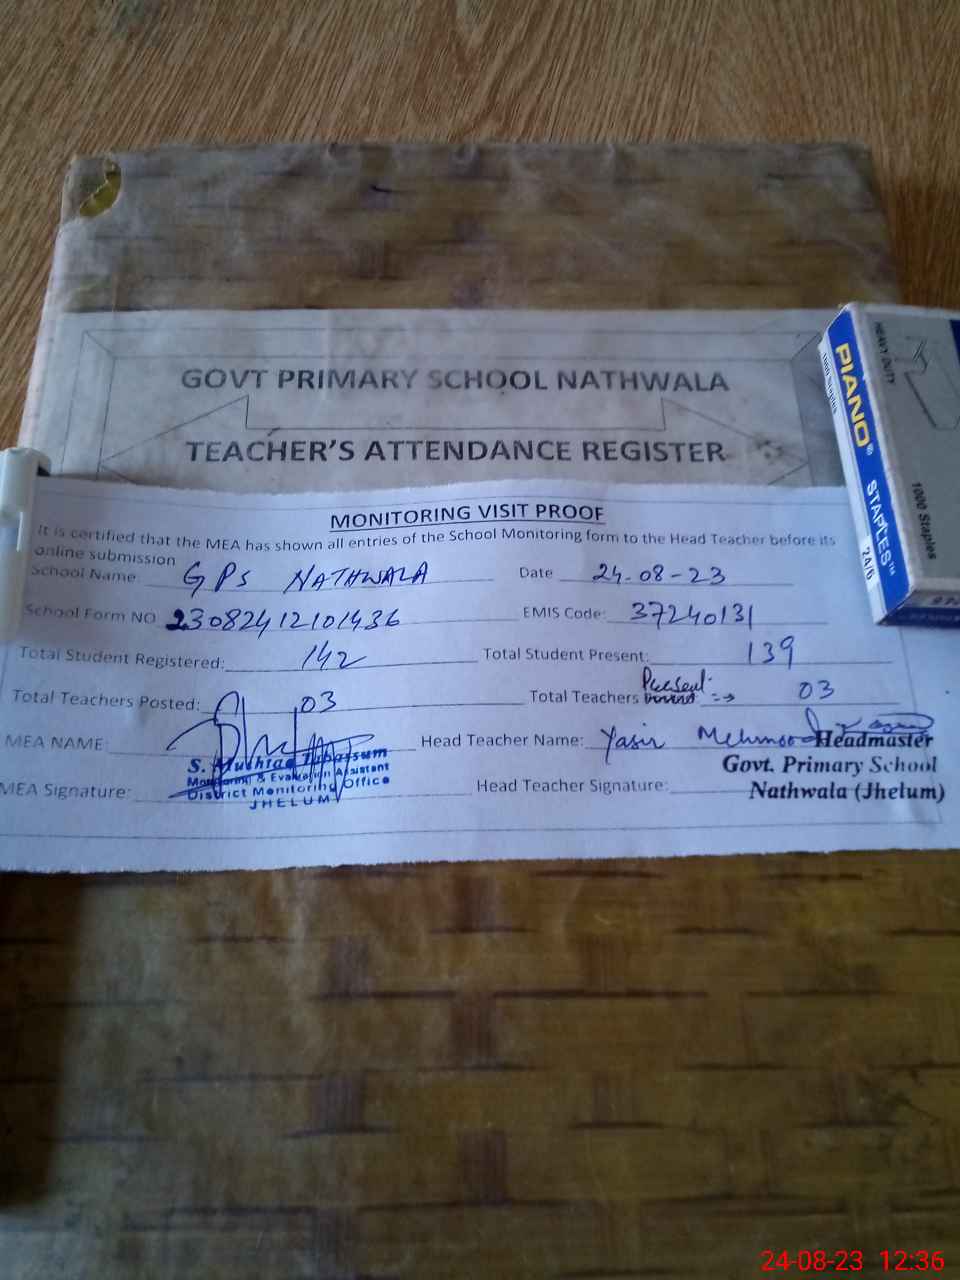 GOVT PRIMARY SCHOOL NATHWALA
TEACHER'S ATTENDANCE REGISTER
PIANO® STAPLES™ 24/6
1000 Staples
HEAVY DUTY
1000 Staples
MONITORING VISIT PROOF
It is certified that the MEA has shown all entries of the School Monitoring form to the Head Teacher before its
online submission
School Name: GPS NATHWALA Date 24-08-23
School Form NO 23082412101436 EMIS Code: 37240131
Total Student Registered: 142 Total Student Present: 139
Total Teachers Posted: 03 Total Teachers Present => 03
MEA NAME: Head Teacher Name: Yasir Mehmood
S. Mushtaq Tabassum
Monitoring & Evaluation Assistant
District Monitoring Office
JHELUM
Headmaster
Govt. Primary School
Nathwala (Jhelum)
MEA Signature: Head Teacher Signature:
24-08-23 12:36